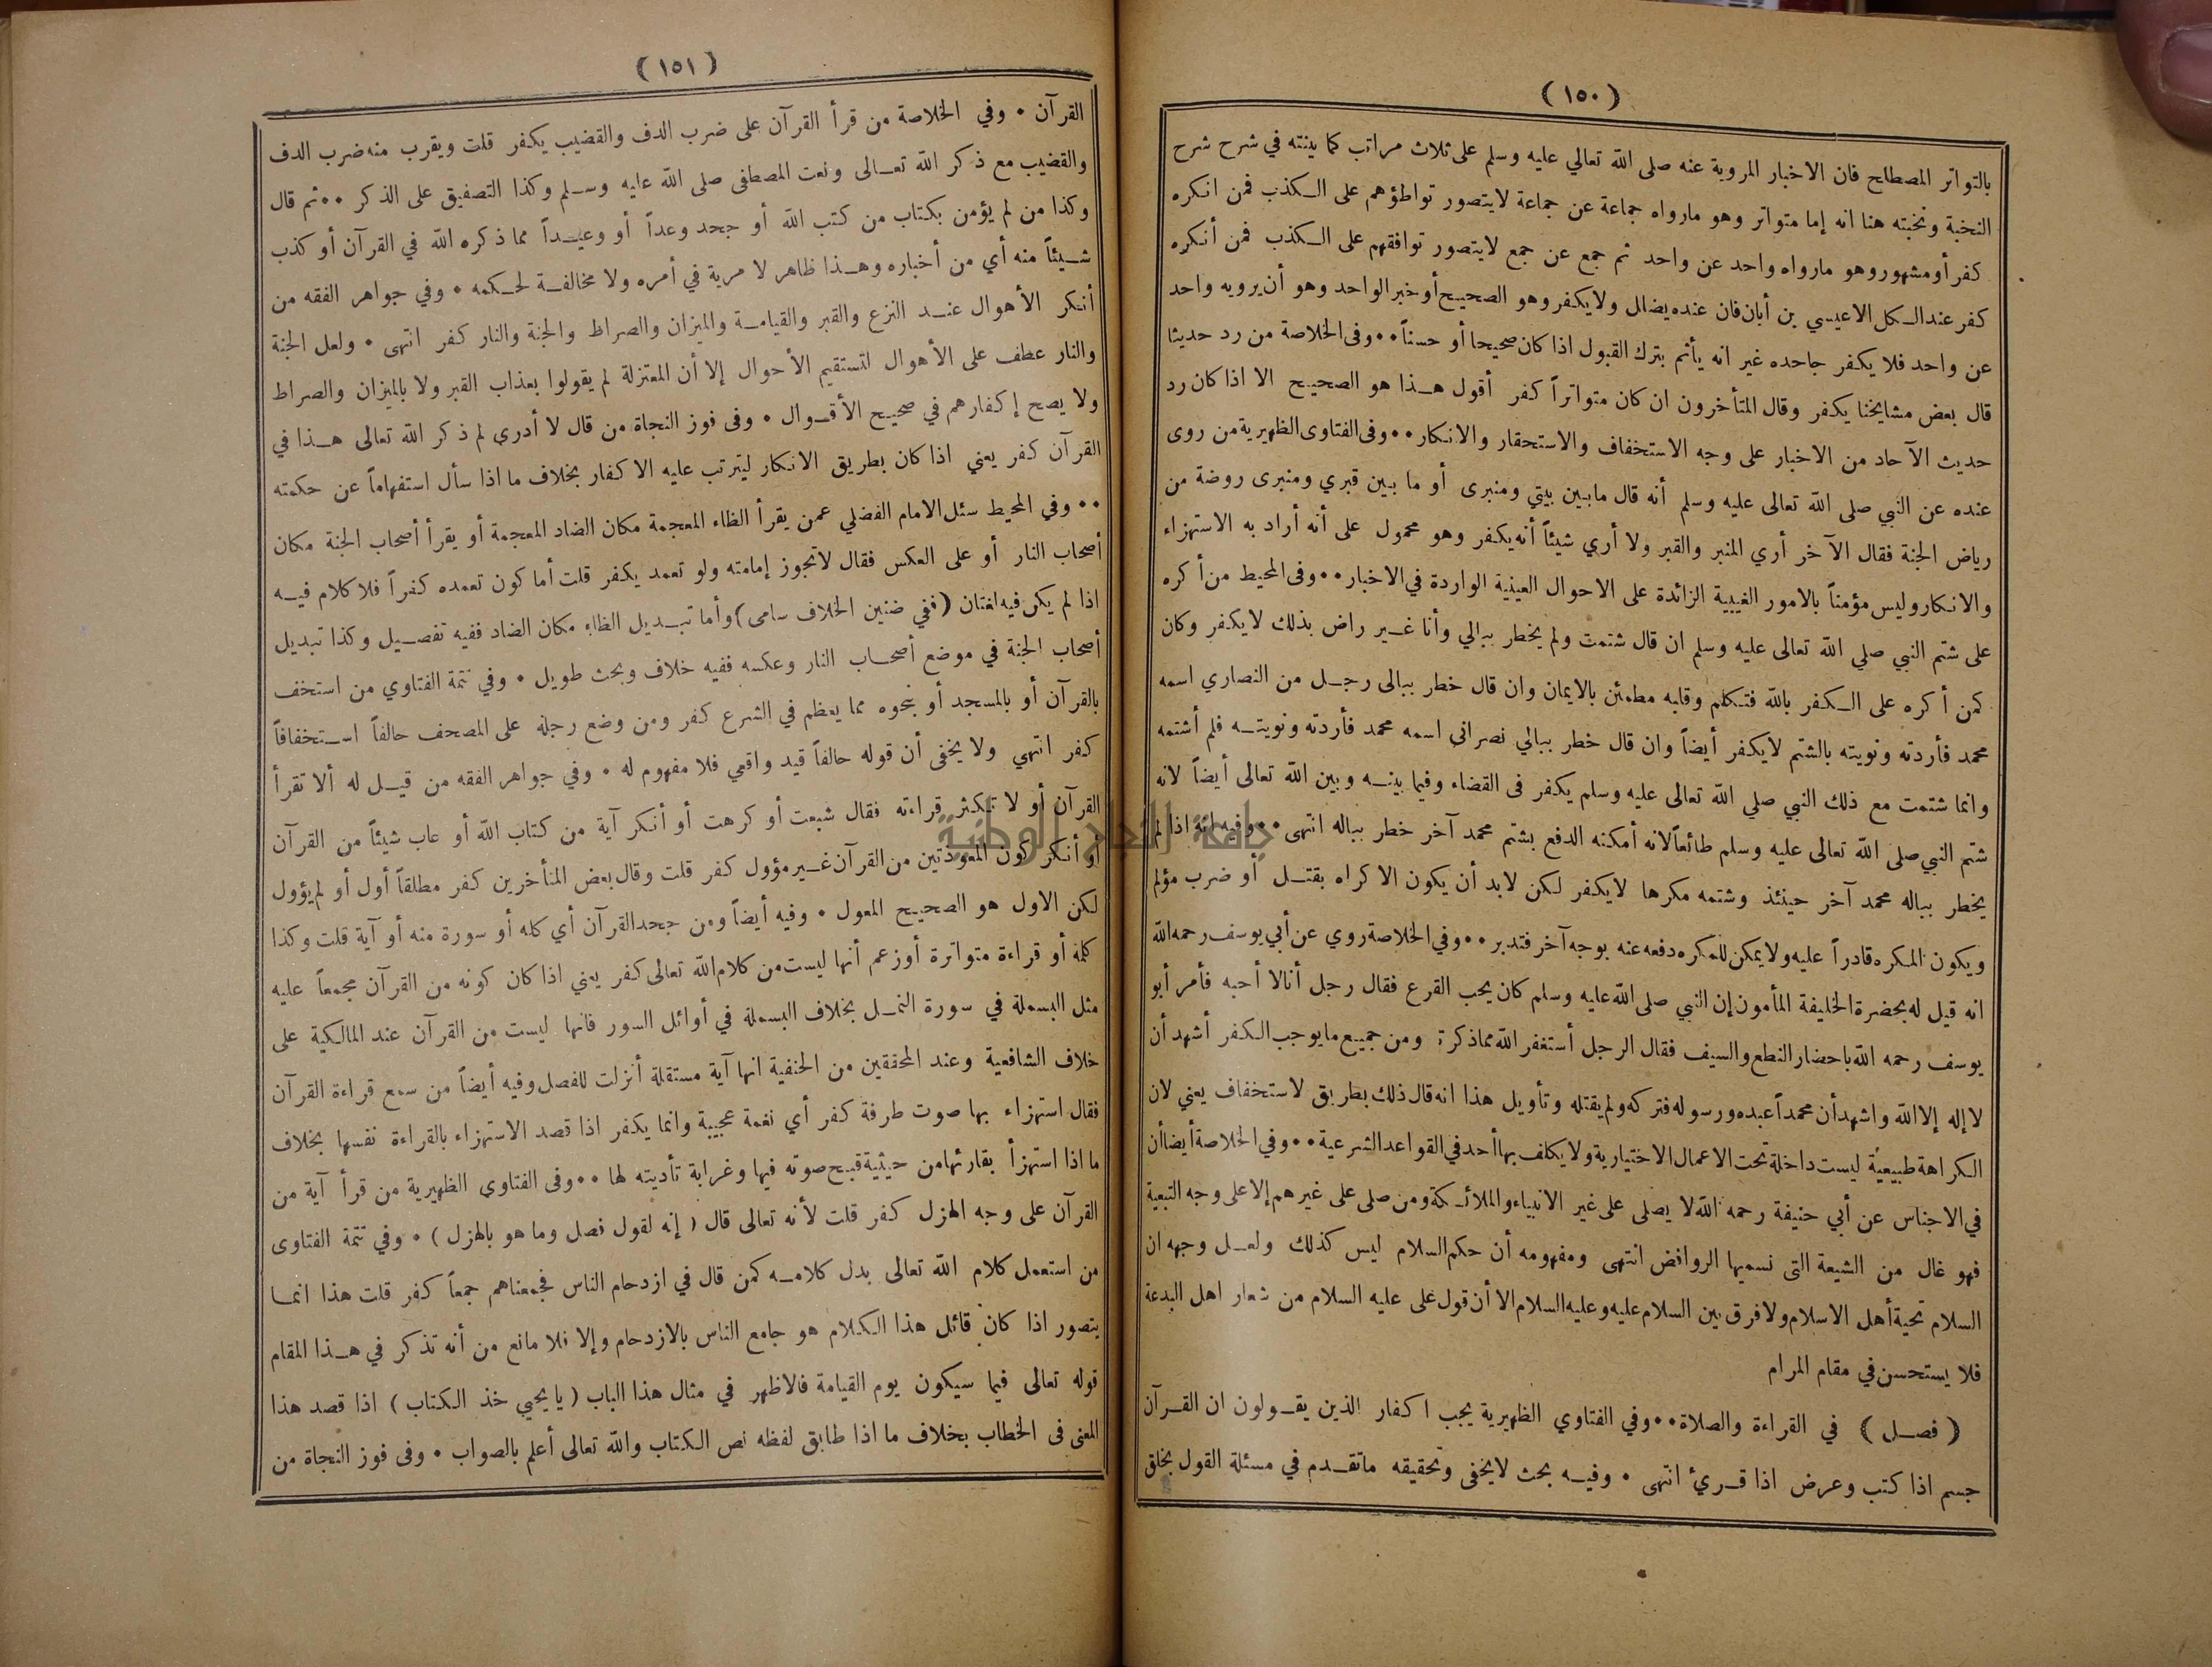 (١٥٠)
بالتواتر المصطلح فان الاخبار المروية عنه صلى الله تعالي عليه وسلم على ثلاث مراتب كما بينته في شرح شرح
النخبة ونخبته هنا انه إما متواتر وهو مارواه جماعة عن جماعة لايتصور تواطؤهم على الكذب فمن انكره
كفر أومشهور وهو مارواه واحد عن واحد ثم جمع عن جمع لايتصور توافقهم على الكذب فمن أنكره
كفر عند الكل الاعيسي بن أبان فان عنده يضلل ولا يكفر وهو الصحيح أو خبر الواحد وهو أن يرويه واحد
عن واحد فلا يكفر جاحده غير انه يأثم بترك القبول اذا كان صحيحا أو حسناً ٠٠ وفى الخلاصة من رد حديثا
قال بعض مشايخنا يكفر وقال المتأخرون ان كان متواتراً كفر أقول هذا هو الصحيح الا اذا كان رد
حديث الآحاد من الاخبار على وجه الاستخفاف والاستحقار والانكار ٠٠ وفى الفتاوى الظهيرية من روى
عنده عن النبي صلى الله تعالى عليه وسلم أنه قال مابين بيتي ومنبرى أو ما بين قبري ومنبرى روضة من
رياض الجنة فقال الآخر أري المنبر والقبر ولا أري شيئاً أنه يكفر وهو محمول على أنه أراد به الاستهزاء
والانكار وليس مؤمناً بالامور الغيبية الزائدة على الاحوال العينية الواردة في الاخبار ٠٠ وفى المحيط من أكره
على شتم النبي صلي الله تعالى عليه وسلم ان قال شتمت ولم يخطر ببالي وأنا غير راض بذلك لايكفر وكان
كمن أكره على الكفر بالله فتكلم وقلبه مطمئن بالايمان وان قال خطر ببالى رجل من النصاري اسمه
محمد فأردته ونويته بالشتم لايكفر أيضاً وان قال خطر ببالي نصراني اسمه محمد فأردته ونويته فلم أشتمه
وانما شتمت مع ذلك النبي صلي الله تعالى عليه وسلم يكفر فى القضاء وفيما بينه وبين الله تعالى أيضاً لانه
شتم النبي صلى الله تعالى عليه وسلم طائعاً لانه أمكنه الدفع بشتم محمد آخر خطر بباله انتهى ٠٠ وفيه انه اذا لم
يخطر بباله محمد آخر حينئذ وشتمه مكرها لايكفر لكن لابد أن يكون الاكراه بقتل أو ضرب مؤلم
ويكون المكره قادراً عليه ولا يمكن للمكره دفعه عنه بوجه آخر فتدبر ٠٠ وفي الخلاصة روي عن أبي يوسف رحمه الله
انه قيل له بحضرة الخليفة المأمون إن النبي صلى الله عليه وسلم كان يحب القرع فقال رجل أنا لا أحبه فأمر أبو
يوسف رحمه الله باحضار النطع والسيف فقال الرجل أستغفر الله مماذكرته ومن جميع مايوجب الكفر أشهد أن
لا إله إلا الله واشهد أن محمداً عبده ورسوله فتركه ولم يقتله وتأويل هذا انه قال ذلك بطريق لاستخفاف يعني لان
الكراهة طبيعية ليست داخلة تحت الاعمال الاختيارية ولا يكلف بها أحد في القواعد الشرعية ٠٠ وفي الخلاصة أيضاأن
في الاجناس عن أبي حنيفة رحمه الله لا يصلى على غير الانبياء والملائكة ومن صلى على غيرهم إلا على وجه التبعية
فهو غال من الشيعة التى نسميها الروافض انتهى ومفهومه أن حكم السلام ليس كذلك ولعل وجهه ان
السلام تحية أهل الاسلام ولا فرق بين السلام عليه وعليه السلام الا أن قول على عليه السلام من شعار اهل البدعة
فلا يستحسن في مقام المرام
(فصل) في القراءة والصلاة ٠٠ وفي الفتاوي الظهيرية يجب اكفار الذين يقولون ان القرآن
جسم اذا كتب وعرض اذا قرئ انتهى ٠ وفيه بحث لايخفى وتحقيقه ماتقدم في مسئلة القول بخلق
(١٥١)
القرآن ٠ وفي الخلاصة من قرأ القرآن على ضرب الدف والقضيب يكفر قلت ويقرب منه ضرب الدف
والقضيب مع ذكر الله تعالى ونعت المصطفى صلى الله عليه وسلم وكذا التصفيق على الذكر ٠٠ ثم قال
وكذا من لم يؤمن بكتاب من كتب الله أو جحد وعداً أو وعيداً مما ذكره الله في القرآن أو كذب
شيئاً منه أي من أخباره وهذا ظاهر لا مرية في أمره ولا مخالفة لحكمه ٠ وفي جواهر الفقه من
أنكر الأهوال عند النزع والقبر والقيامة والميزان والصراط والجنة والنار كفر انتهى ٠ ولعل الجنة
والنار عطف على الأهوال لتستقيم الأحوال إلا أن المعتزلة لم يقولوا بعذاب القبر ولا بالميزان والصراط
ولا يصح إكفارهم في صحيح الأقوال ٠ وفى فوز النجاة من قال لا أدري لم ذكر الله تعالى هذا في
القرآن كفر يعني اذا كان بطريق الانكار ليترتب عليه الاكفار بخلاف ما اذا سأل استفهاماً عن حكمته
٠٠ وفي المحيط سئل الامام الفضلي عمن يقرأ الظاء المعجمة مكان الضاد المعجمة أو يقرأ أصحاب الجنة مكان
أصحاب النار أو على العكس فقال لاتجوز إمامته ولو تعمد يكفر قلت أما كون تعمده كفراً فلا كلام فيه
اذا لم يكن فيه لغتان (ففي ضنين الخلاف سامى) وأما تبديل الظاء مكان الضاد ففيه تفصيل وكذا تبديل
أصحاب الجنة في موضع أصحاب النار وعكسه ففيه خلاف وبحث طويل ٠ وفي تتمة الفتاوي من استخف
بالقرآن أو بالمسجد أو بنحوه مما يعظم في الشرع كفر ومن وضع رجله على المصحف حالفاً استخفافاً
كفر انتهي ولا يخفى أن قوله حالفاً قيد واقعي فلا مفهوم له ٠ وفي جواهر الفقه من قيل له ألا تقرأ
القرآن أو لا تكثر قراءته فقال شبعت أو كرهت أو أنكر آية من كتاب الله أو عاب شيئاً من القرآن
أو أنكر كون المعوذتين من القرآن غير مؤول كفر قلت وقال بعض المتأخرين كفر مطلقاً أول أو لم يؤول
لكن الاول هو الصحيح المعول ٠ وفيه أيضاً ومن جحد القرآن أي كله أو سورة منه أو آية قلت وكذا
كلمة أو قراءة متواترة أو زعم أنها ليست من كلام الله تعالى كفر يعني اذا كان كونه من القرآن مجمعاً عليه
مثل البسملة في سورة النمل بخلاف البسملة في أوائل السور فانها ليست من القرآن عند المالكية على
خلاف الشافعية وعند المحققين من الحنفية انها آية مستقلة أنزلت للفصل وفيه أيضاً من سمع قراءة القرآن
فقال استهزاء بها صوت طرفة كفر أي نغمة عجيبة وانما يكفر اذا قصد الاستهزاء بالقراءة نفسها بخلاف
ما اذا استهزأ بقارئها من حيثية قبح صوته فيها وغرابة تأديته لها ٠٠ وفى الفتاوي الظهيرية من قرأ آية من
القرآن على وجه الهزل كفر قلت لأنه تعالى قال (إنه لقول فصل وما هو بالهزل) ٠ وفي تتمة الفتاوى
من استعمل كلام الله تعالى بدل كلامه كمن قال في ازدحام الناس فجمعناهم جمعاً كفر قلت هذا انما
يتصور اذا كان قائل هذا الكلام هو جامع الناس بالازدحام وإلا فلا مانع من أنه تذكر في هذا المقام
قوله تعالى فيما سيكون يوم القيامة فالاظهر في مثال هذا الباب (يا يحيي خذ الكتاب) اذا قصد هذا
المعنى فى الخطاب بخلاف ما اذا طابق لفظه نص الكتاب والله تعالى أعلم بالصواب ٠ وفى فوز النجاة من
جامعة النجاح الوطنية